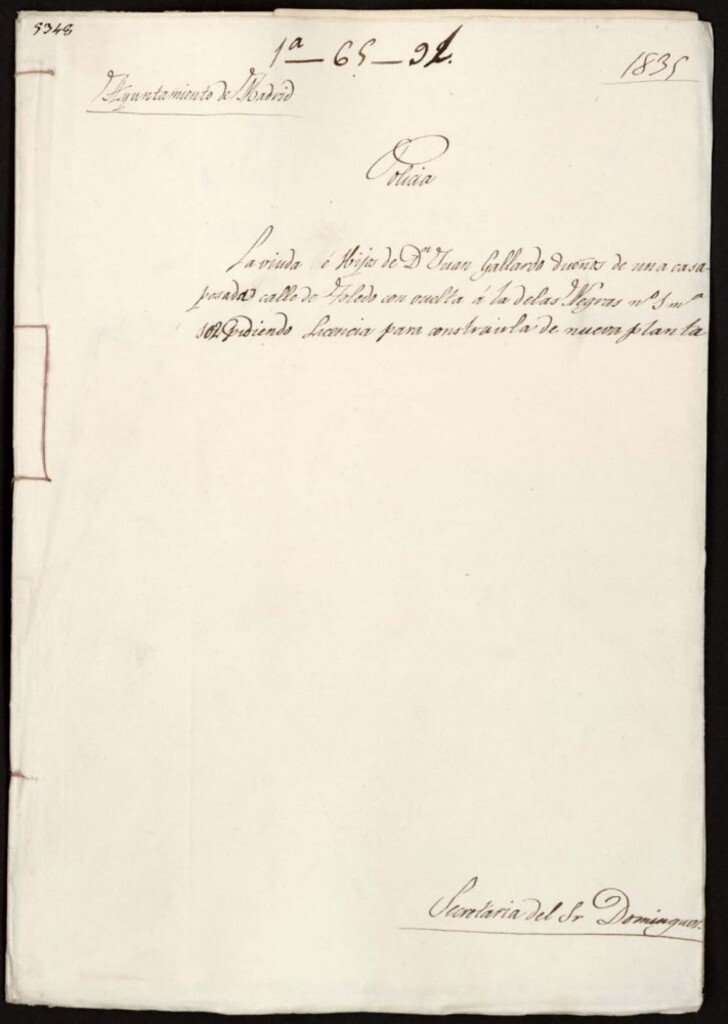 5348
1ª — 65 — 92.
1835
Ayuntamiento de Madrid
Policia
La viuda é Hijos de Dn Juan Gallardo dueños de una casa
posada calle de Toledo con vuelta á la de las Negras nº 1 mª
102 pidiendo Licencia para construirla de nueva planta
Secretaria del Sr Dominguez.